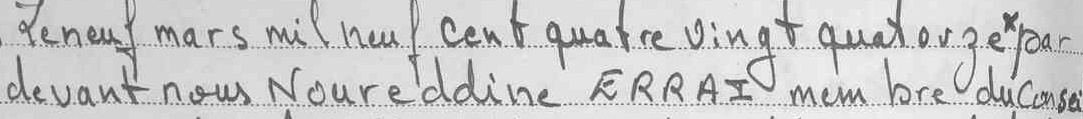 Le neuf mars mil neuf cent quatre vingt quatorze* par
devant nous Noureddine ERRAI membre du Consei